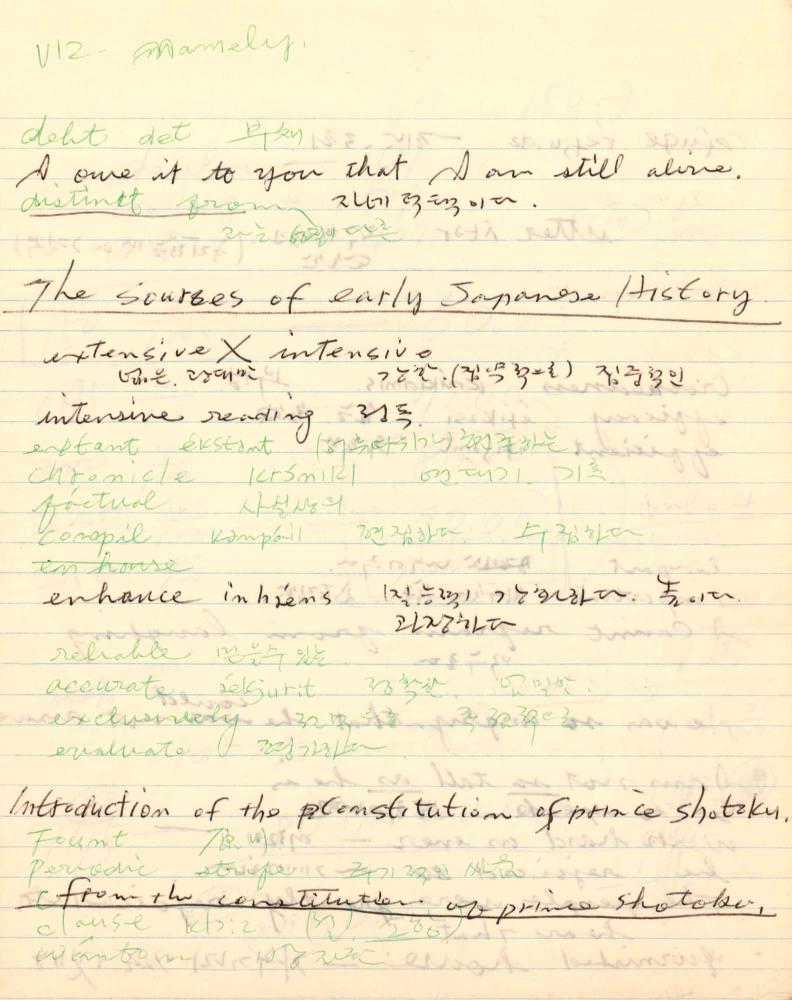 VIZ - namely.
debt det 부채
I owe it to you that I am still alive.
distinct from 자네 덕택이다.
The sources of early Japanese History
extensive X intensive
넓은. 광대한 강한. (집약적으로) 집중적인
intensive reading 정독.
extant ékstənt 현존하는
chronicle krɔ́nikl 연대기. 기록
factual 사실상의
compil kəmpáil 편집하다. 수집하다
en house
enhance inhǽns (질, 능력) 강화하다. 높이다.
과장하다
reliable 믿을수 있는
accurate ǽkjurit 정확한. 엄밀한.
exclusively
evaluate 평가하다
Introduction of the constitution of prince shotoku.
Fount
Periodic strife 주기적인 싸움
from the constitution of prince shotoku,
clause klɔ:z